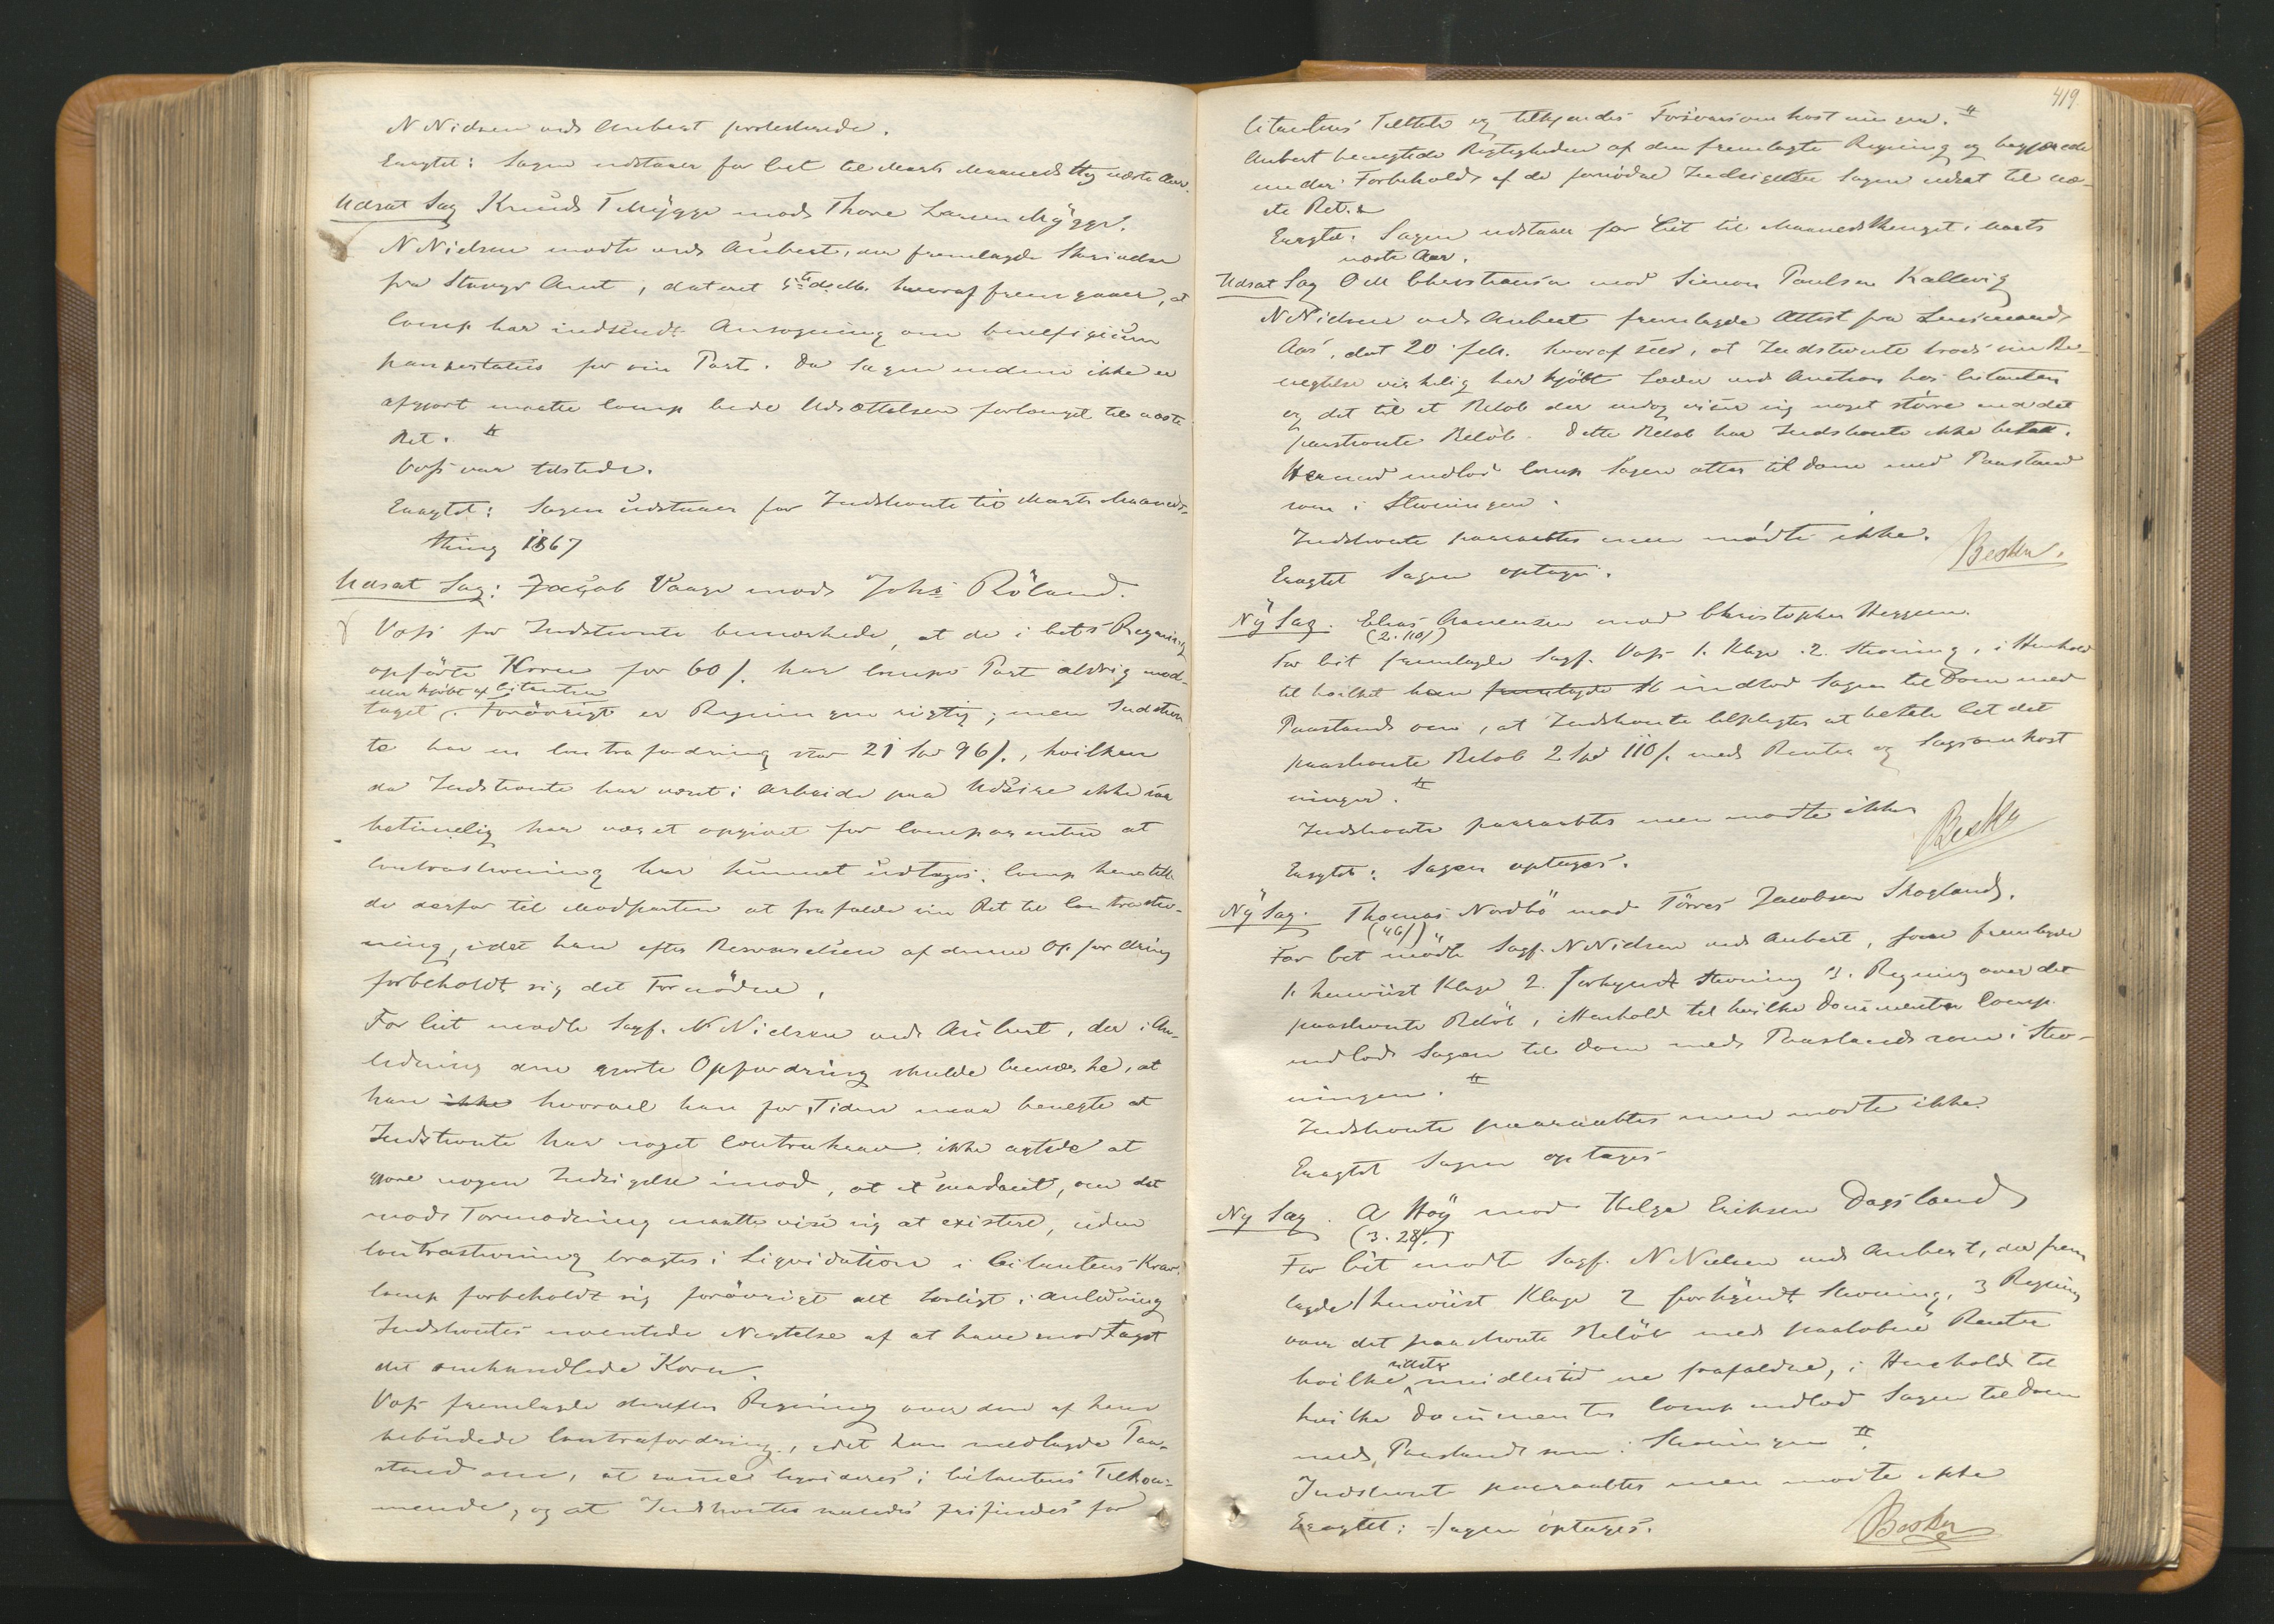 N Nielsen ved Aubert protesterede.
Eragtet: Sagen udstaaer for Cit til Marts Maaneds Thg næste Aar.
Udsat Sag Knud T Mÿgge mod Thore Larsen Mÿgge.
N Nielsen mødte ved Aubert, der fremlagde Skrivelse
fra Stavgr Amt, dateret 5te ds Mts. hvoraf fremgaaer, at
Comp har indsendt Ansøgning om beneficium
paupertatis for sin Part. Da Sagen endnu ikke er
afgjort maatte Comp bede Udsættelsen forlænget til næste
Ret. #
Voss var tilstede.
Eragtet: Sagen udstaaer for Indstevnte til Marts Maaneds-
thing 1867
Udsat Sag: Jacob Vaage mod Johs Röland.
Voss for Indstevnte bemærkede, at de i Cits Regning
opförte Korn for 60 s. har Comps Part aldrig mod-
eller kjöbt af Citanten
taget. Forövrigt er Regningen rigtig; men Indstevn
te har en Contrafordring stor 21 Spd 96 s., hvilken
da Indstevnte har været i Arbeide paa Udsire ikke saa
betimelig har været opgivet for Comparenten at
Contrastevning har kunnet udtages. Comp henstille
de derfor til Modparten at frafalde sin Ret til Contrastev-
ning, idet han efter Besvarelsen af denne Opfordring
forbeholdt sig det Fornödne.
For Cit mødte Sagf. N Nielsen ved Aubert, der i An-
ledning den gjorte Opfordring skulde bemærke, at
han ikke hvorvel han for Tiden maa benegte at
Indstevnte har noget Contrakrav ikke agtede at
gjøre nogen Indsigelse imod, at et saadant, om det
mod Formodning maatte vise sig at existere, uden
Contrastevning bragtes i Liqvidation i Citantens Krav.
Comp forbeholdt sig forövrigt alt lovligt i Anledning
Indstevntes uventede Negtelse af at have modtaget
det omhandlede Korn.
Voss fremlagde derefter Regning over den af ham
bebudede Contrafordring, idet han nedlagde Paa-
stand om, at samme liqvideres i Citantens Tilkom-
mende, og at Indstevntes saaledes frifindes for
419.
Citantens Tiltale og tilkjendes Forsvarsomkostninger. #
Aubert benegtede Rigtigheden af den fremlagte Regning og begjærede
under Forbehold af de fornödne Indsigelser Sagen udsat til næ-
ste Ret. #
Eragtet: Sagen udstaaer for Cit til Maanedsthinget i Marts
næste Aar.
Udsat Sag O M Christensen mod Simon Paulsen Kallevig
N Nielsen ved Aubert fremlagde Attest fra Lensmand
Aas, dat 20 feb. hvoraf sees, at Indstevnte trods sin Be-
negtelse virkelig har kjöbt Læder ved Auction hos Citanten
og det til et Belöb der endog viser sig noget större end det
paastevnte Belöb. Dette Belöb har Indstevnte ikke betalt.
Hermed indlod Comp Sagen atter til Dom med Paastand
som i Stevningen.
Indstevnte paaraabtes men mödte ikke.
Eragtet Sagen optages.
Beskr.
Nÿ Sag. Elias Aanensen mod Christopher Heggem.
(2. 110 s)
For Cit fremlagde Sagf. Voss 1. Klage 2. Stevning, i Henhold
til hvilket han fremlagde St indlod Sagen til Dom med
Paastand om, at Indstevnte tilpligtes at betale Cit det
paastevnte Belöb 2 Spd 110 s. med Renter og Sagsomkost
ninger. #
Indstevnte paaraabtes men mødte ikke
Eragtet: Sagen optages.
Beskr
Nÿ Sag. Thomas Nordbö mod Törres Jacobsen Skogland.
(46 s)
For Cit mödte Sagf. N Nielsen ved Aubert, som fremlagde
1. henviist Klage 2. forkyndt Stevning 3. Regning over det
paastevnte Belöb, i Henhold til hvilke Documenter Comp
indlod Sagen til Dom med Paastand som i Stev-
ningen. #
Indstevnte paaraabtes men mødte ikke.
Eragtet Sagen optages
Ny Sag. A Höÿ mod Helge Eriksen Dagsland
(3. 28 s.)
For Cit mødte Sagf. N Nielsen ved Aubert, der frem
lagde 1 henviist Klage 2 forkyndt Stevning, 3 Regning
over det paastevnte Belöb med paalöbne Renter
hvilke sidste imidlertid ere frafaldne, i Henhold til
hvilke Documenter Comp indlod Sagen til Dom
med Paastand som i Stevningen #.
Indstevnte paaraabtes men mødte ikke
Eragtet: Sagen optages.
Beskr